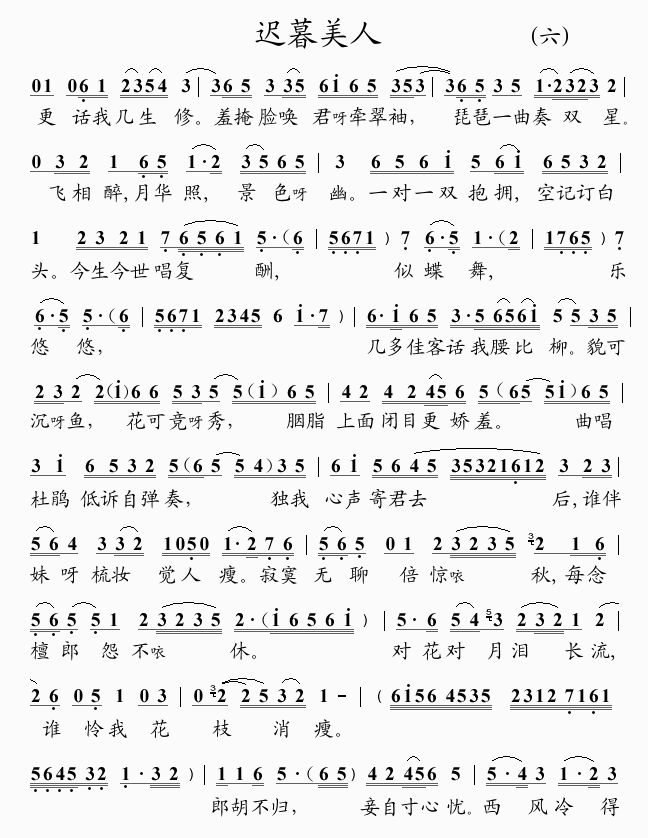 迟暮美人 (六)
01 061 2354 3 | 365 3 35 6i 6 5 353 | 365 3 5 1·2323 2 |
更 话我几生 修。羞掩脸唤 君呀牵翠袖, 琵琶一曲奏 双 星。
0 3 2 1 6 5 1·2 3 5 6 5 | 3 6 5 6 i 5 6 i 6 5 3 2 |
飞相 醉,月华 照, 景 色呀 幽。一对一双 抱拥, 空记订白
1 2 3 2 1 7 6 5 6 1 5·(6 | 5671) 7 6·5 1·(2 | 1765) 7
头。今生今世唱复 酬, 似 蝶 舞, 乐
6·5 5·(6 | 5671 2345 6 i·7) | 6·i 6 5 3·5 656i 5 5 3 5 |
悠 悠, 几多佳客话我腰比 柳。貌可
2 3 2 2(i)6 6 5 3 5 5(i)6 5 | 4 2 4 2 45 6 5(65 5i)6 5 |
沉呀鱼, 花可竞呀秀, 胭脂 上面闭目更 娇羞。 曲唱
3 i 6 5 3 2 5(6 5 5 4)3 5 | 6 i 5 6 4 5 35321612 3 2 3 |
杜鹃 低诉自弹奏, 独我 心声寄君去 后,谁伴
5 6 4 3 3 2 1050 1·2 7 6 | 5 6 5 0 1 2 3 2 3 5 32 1 6 |
妹 呀 梳妆 觉人 瘦。寂寞 无 聊 倍 惊咴 秋,每念
5 6 5 5 1 2 3 2 3 5 2·(i 6 5 6 i) | 5·6 5 4 53 2 3 2 1 2
檀 郎 怨 不咴 休。 对 花对 月泪 长流,
2 6 0 5 1 0 3 | 0 32 2 5 3 2 1 - | (6i56 4535 2312 7161
谁 怜我 花 枝 消 瘦。
5645 32 1·3 2) | 1 1 6 5·(6 5) 4 2 456 5 | 5·4 3 1·2 3
郎胡不归, 妾自寸心忧。西 风冷 得